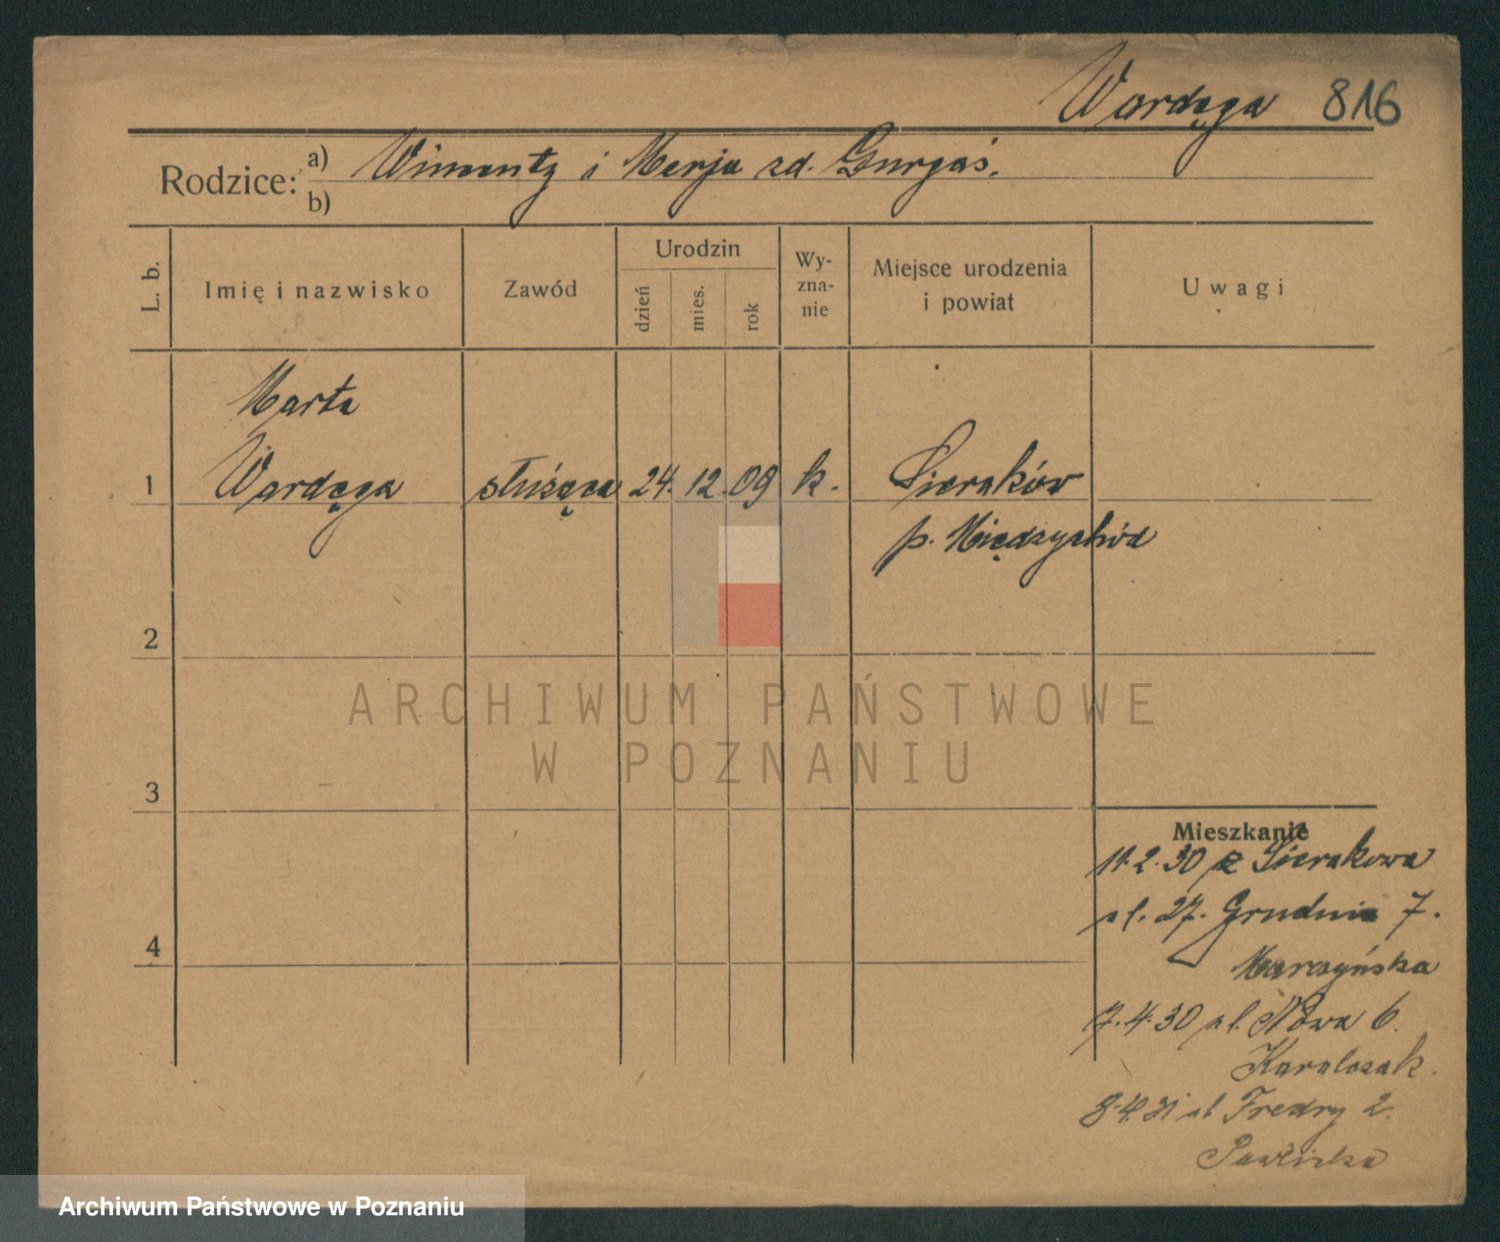 Wardęga 816
Rodzice: a) Wincenty i Marja zd. Gurgaś.
b)
L. b.
Imię i nazwisko
Zawód
Urodzin
dzień
mies.
rok
Wy-
zna-
nie
Miejsce urodzenia
i powiat
Uwagi
Marta
1 Wardęga służąca 24. 12. 09 k. Sieraków
p. Międzychód
2
ARCHIWUM PAŃSTWOWE
W POZNANIU
3
Mieszkanie
11.2.30 z Sierakowa
ul. 27. Grudnia 7.
4
7.4.30 ul. Nowa 6.
8.4.31 ul Fredry 2.
Archiwum Państwowe w Poznaniu